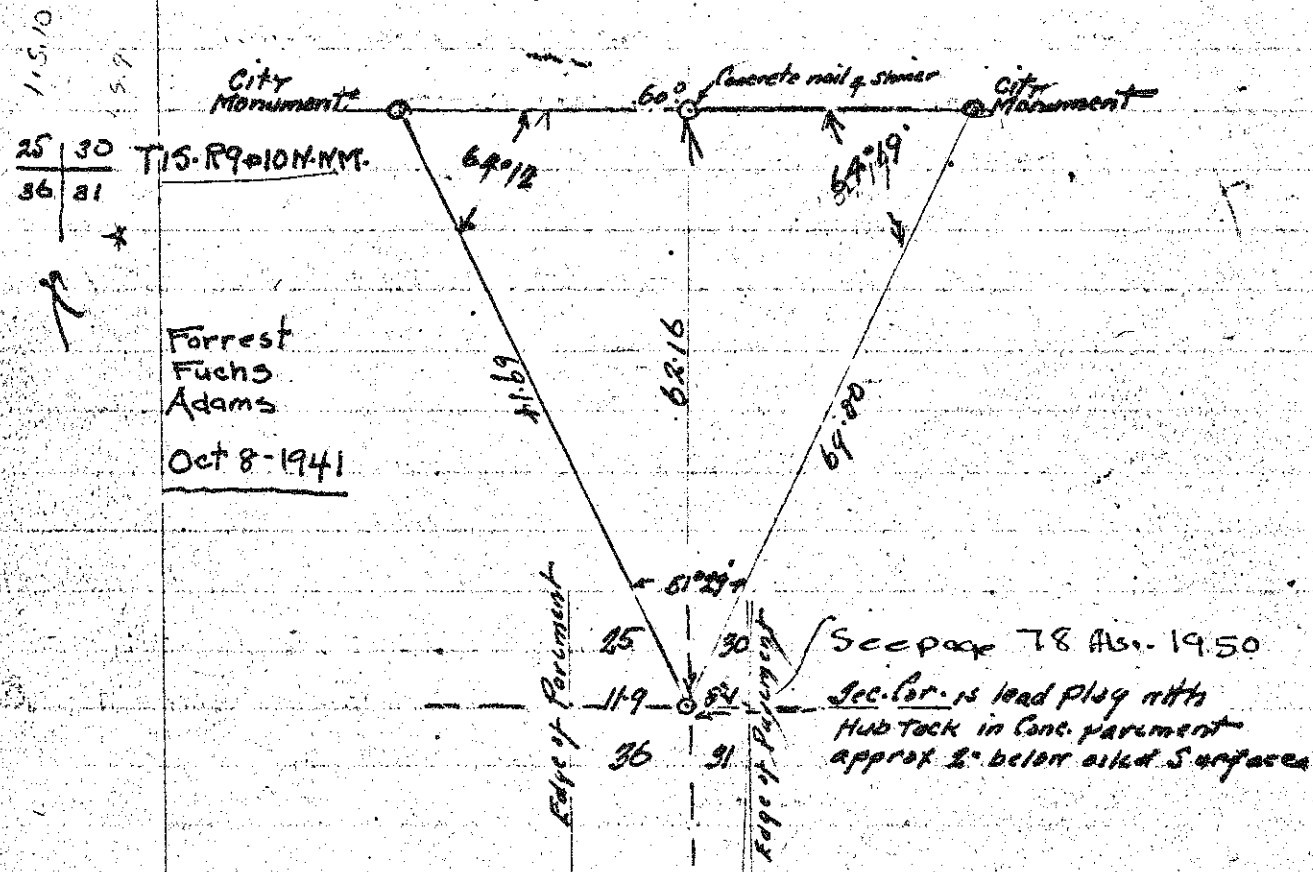 1.S.10
S.9
City
Monument
60°
Concrete nail & shiner
City
Monument
25 | 30
36 | 31
T1S-R9&10W-WM.
64°12
64°19'
Forrest
Fuchs
Adams
Oct 8-1941
69.14
62.16
69.80
51°29'
Edge of Pavement
25
30
11.9
5.4
36
31
Edge of Pavement
See page 78 1950
Sec. Cor. is lead Plug with
Hub Tack in Conc. pavement
approx 2" below oiled Surface